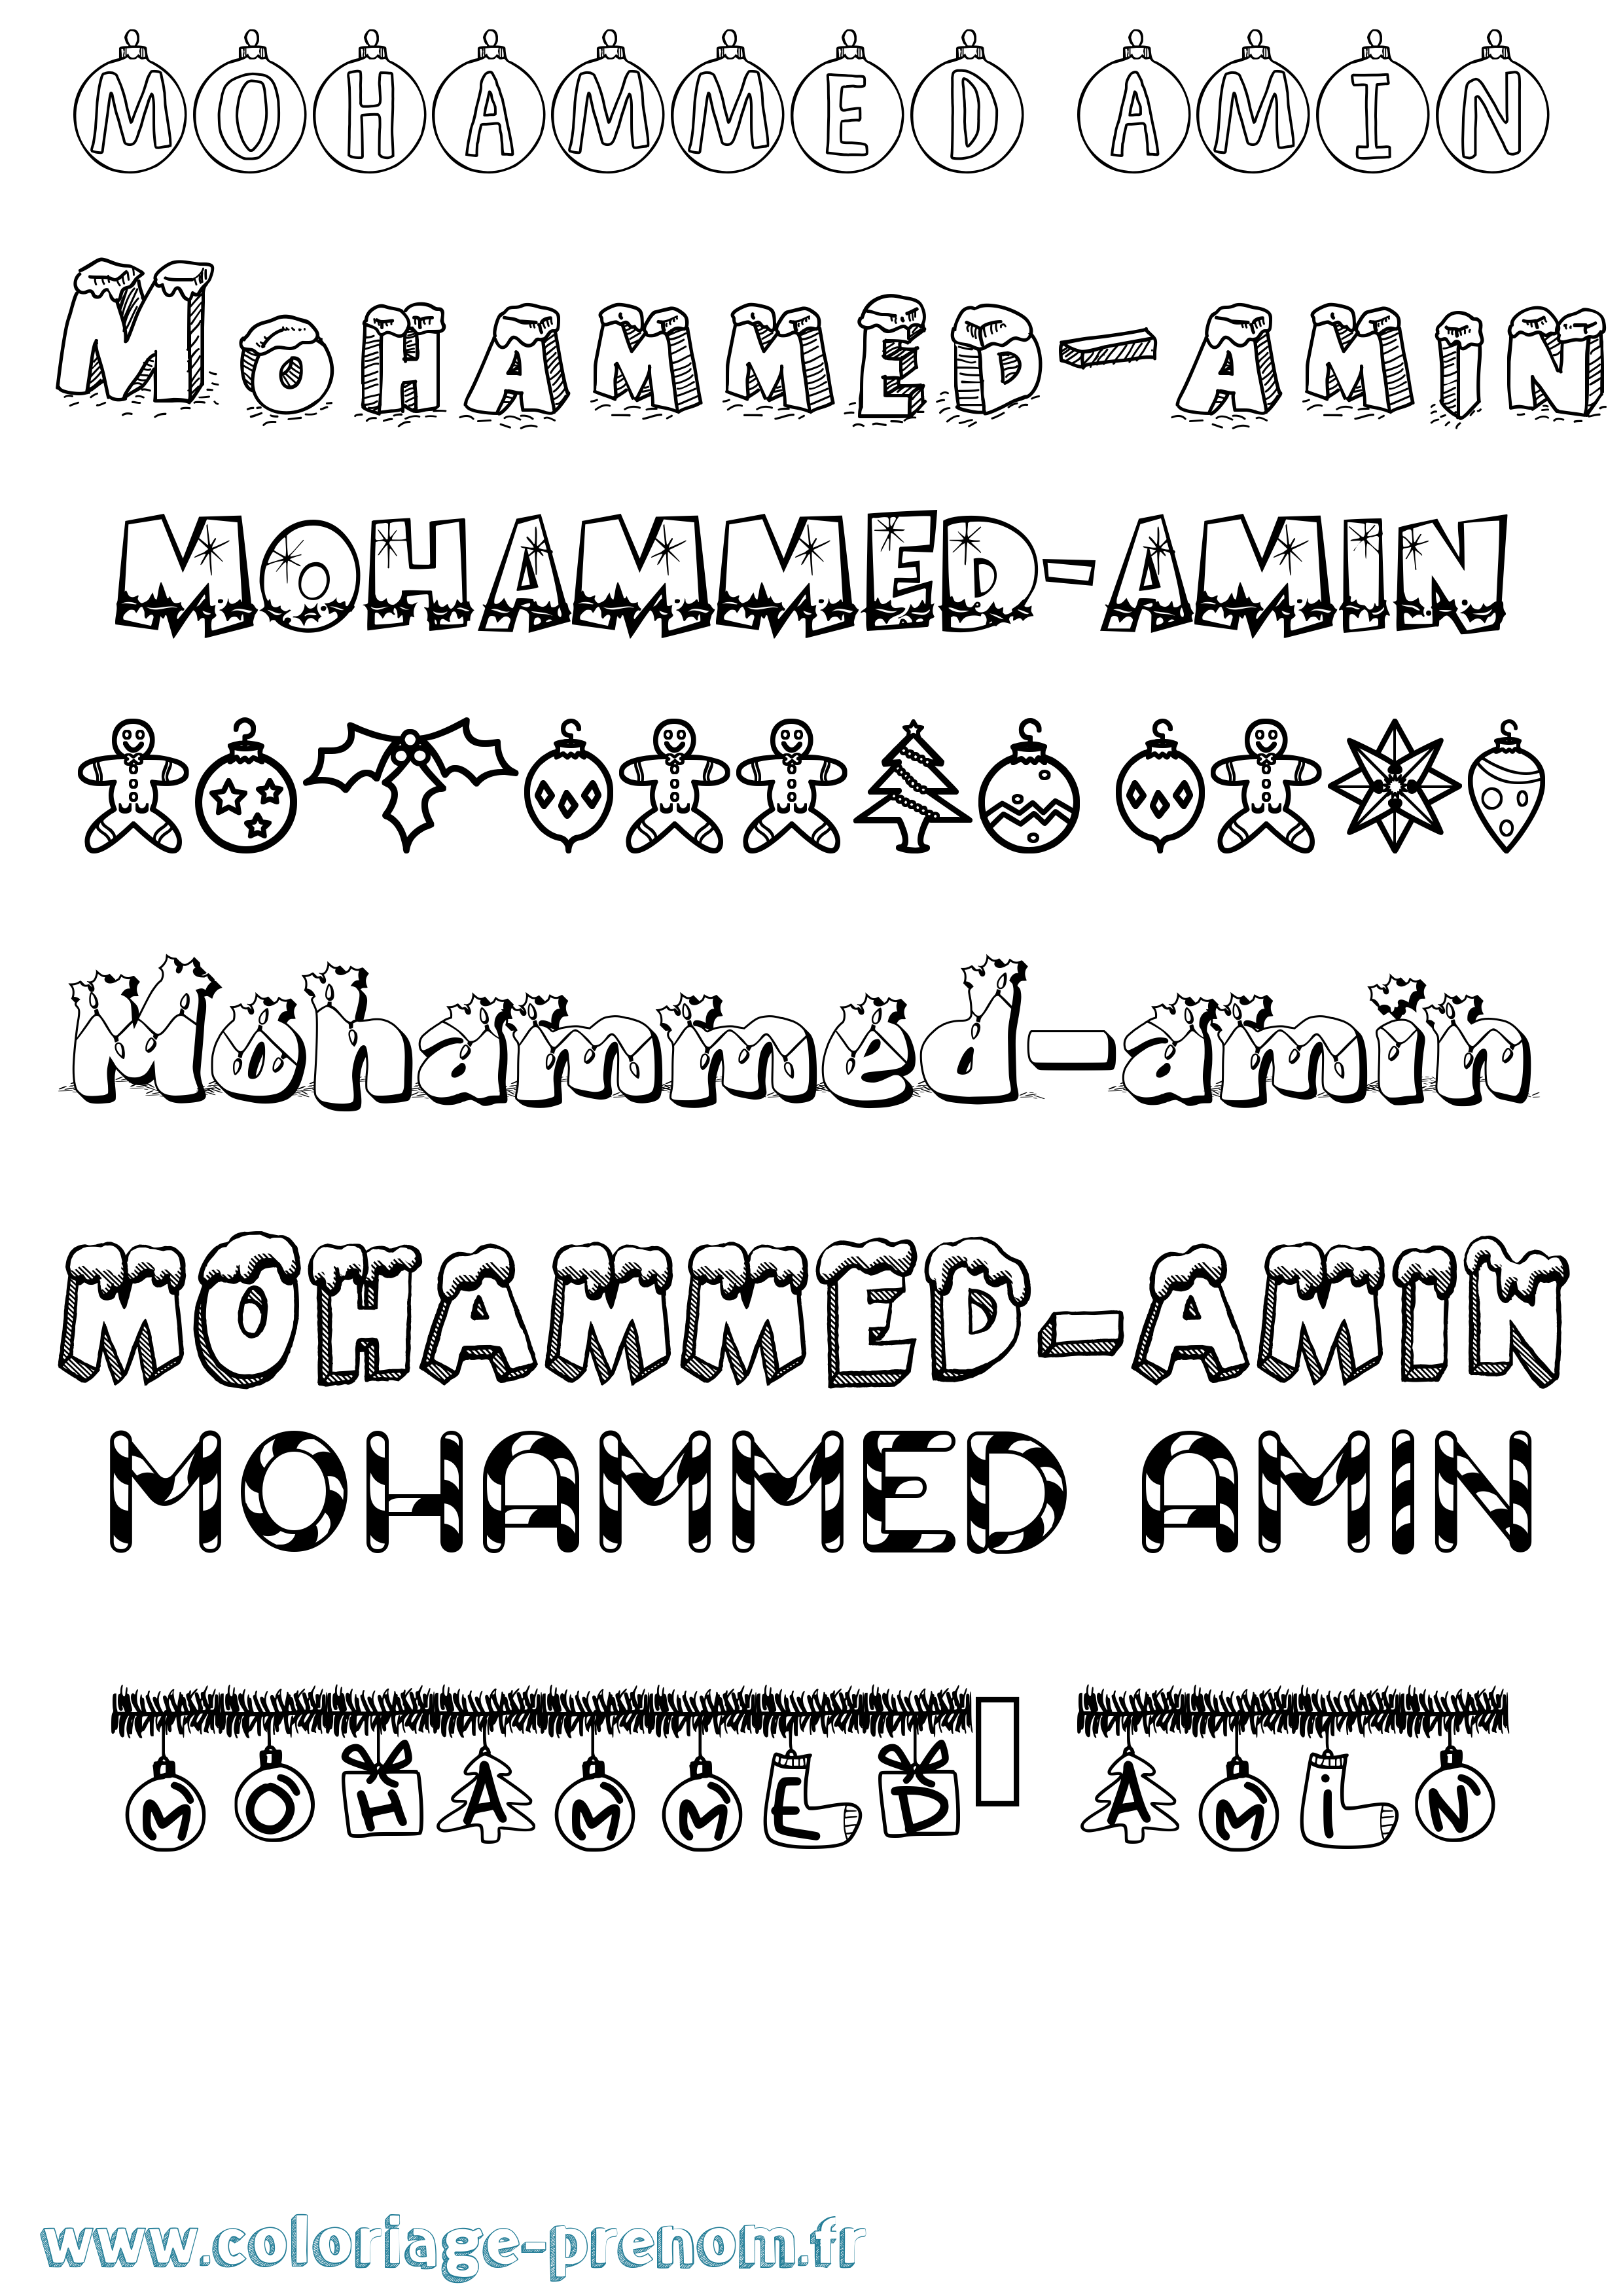 MOHAMMED AMIN
MOHAMMED-AMIN
MOHAMMED-AMIN
Mohammed-amin
MOHAMMED-AMIN
MOHAMMED AMIN
MOHAMMED AMiN
www.coloriage-prenom.fr